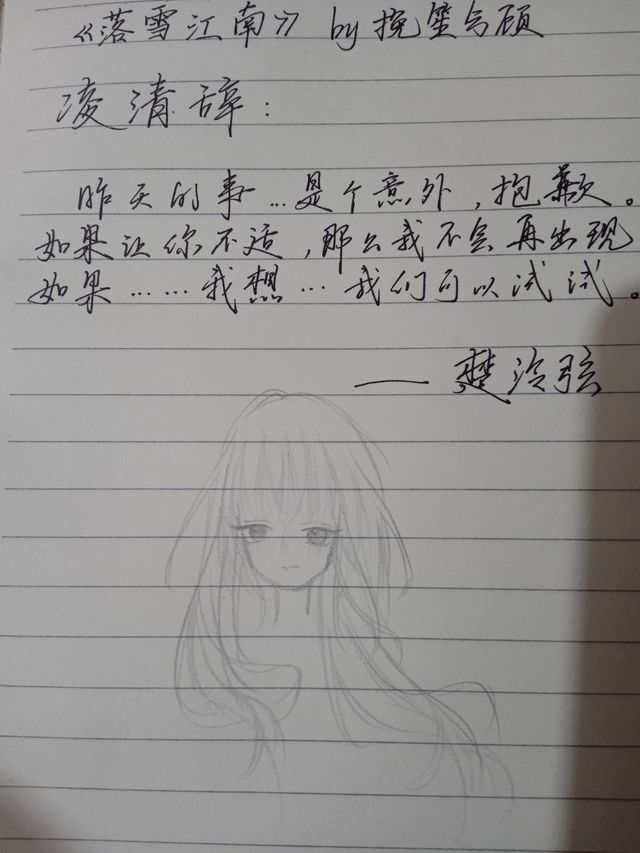 《落雪江南》 by 挽笙与顾
凌清辞：
昨天的事…是个意外，抱歉。
如果让你不适，那么我不会再出现
如果……我想…我们可以试试。
——楚泠弦